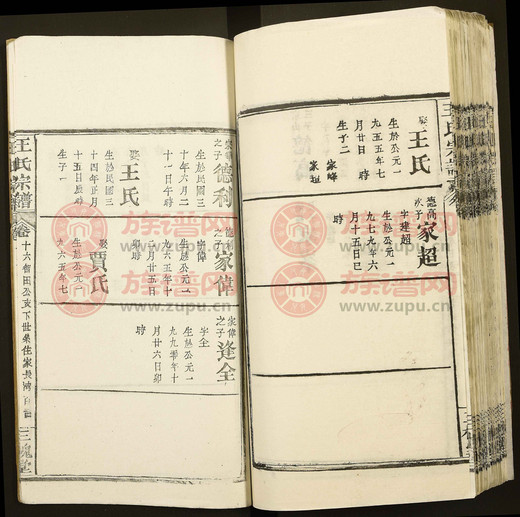 娶王氏
生於公元一
九五五年七
月廿日 時
生子二
家峰
家超
德高
次子
家超
字建超
生於公元一
九七九年六
月十五日巳
時
之子
德利
生於民國三
十一年六月二
十一日午時
娶王氏
生於民國三
十四年正月
十五日辰時
生子一
德利
之子
家偉
字偉
生於公元一
九六五年十
一月廿五日
卯時
娶賈氏
生於公元一
九六五年七
家偉
之子
逢全
字全
生於公元一
九九零年十
月廿六日卯
時
王氏宗譜
三槐堂
族谱网
www.zupu.cn